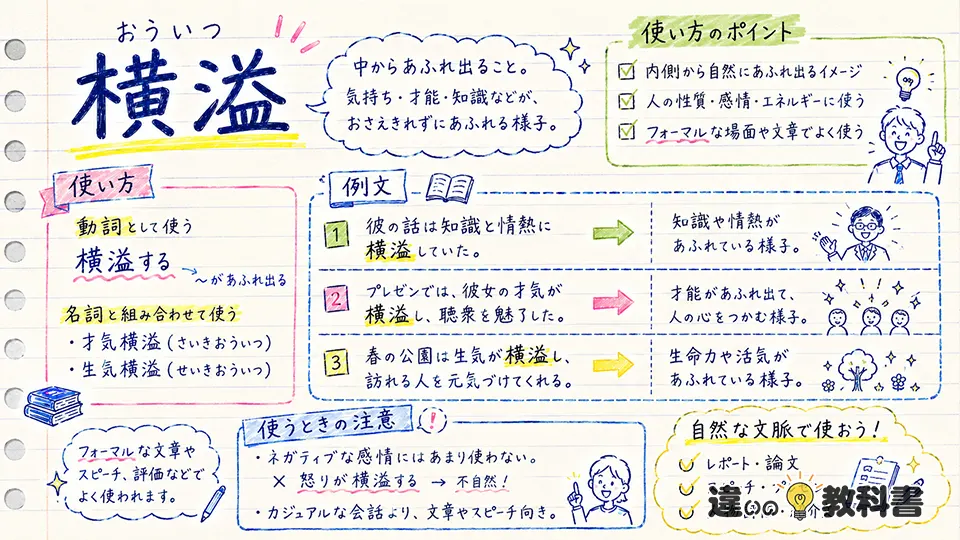 おういつ
横溢
中からあふれ出ること。
気持ち・才能・知識などが、
おさえきれずにあふれる様子。
使い方のポイント
内側から自然にあふれ出るイメージ
人の性質・感情・エネルギーに使う
フォーマルな場面や文章でよく使う
使い方
動詞として使う
横溢する
～があふれ出る
名詞と組み合わせて使う
・才気横溢(さいきおういつ)
・生気横溢(せいきおういつ)
例文
1 彼の話は知識と情熱に
横溢していた。
知識や情熱が
あふれている様子。
2 プレゼンでは、彼女の才気が
横溢し、聴衆を魅了した。
才能があふれ出て、
人の心をつかむ様子。
3 春の公園は生気が横溢し、
訪れる人を元気づけてくれる。
生命力や活気が
あふれている様子。
フォーマルな文章や
スピーチ、評価などで
よく使われます。
使うときの注意 !
・ネガティブな感情にはあまり使わない。
× 怒りが横溢する → 不自然!
・カジュアルな会話より、文章やスピーチ向き。
自然な文脈で使おう!
レポート・論文
スピーチ・
違いの教科書